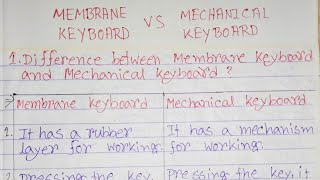 MEMBRANE KEYBOARD VS MECHANICAL KEYBOARD
1. Difference between Membrane Keyboard
and Mechanical Keyboard ?
Membrane Keyboard Mechanical Keyboard
1. It has a rubber It has a mechanism
layer for working. for working.
2. Pressing the key, Pressing the key, it